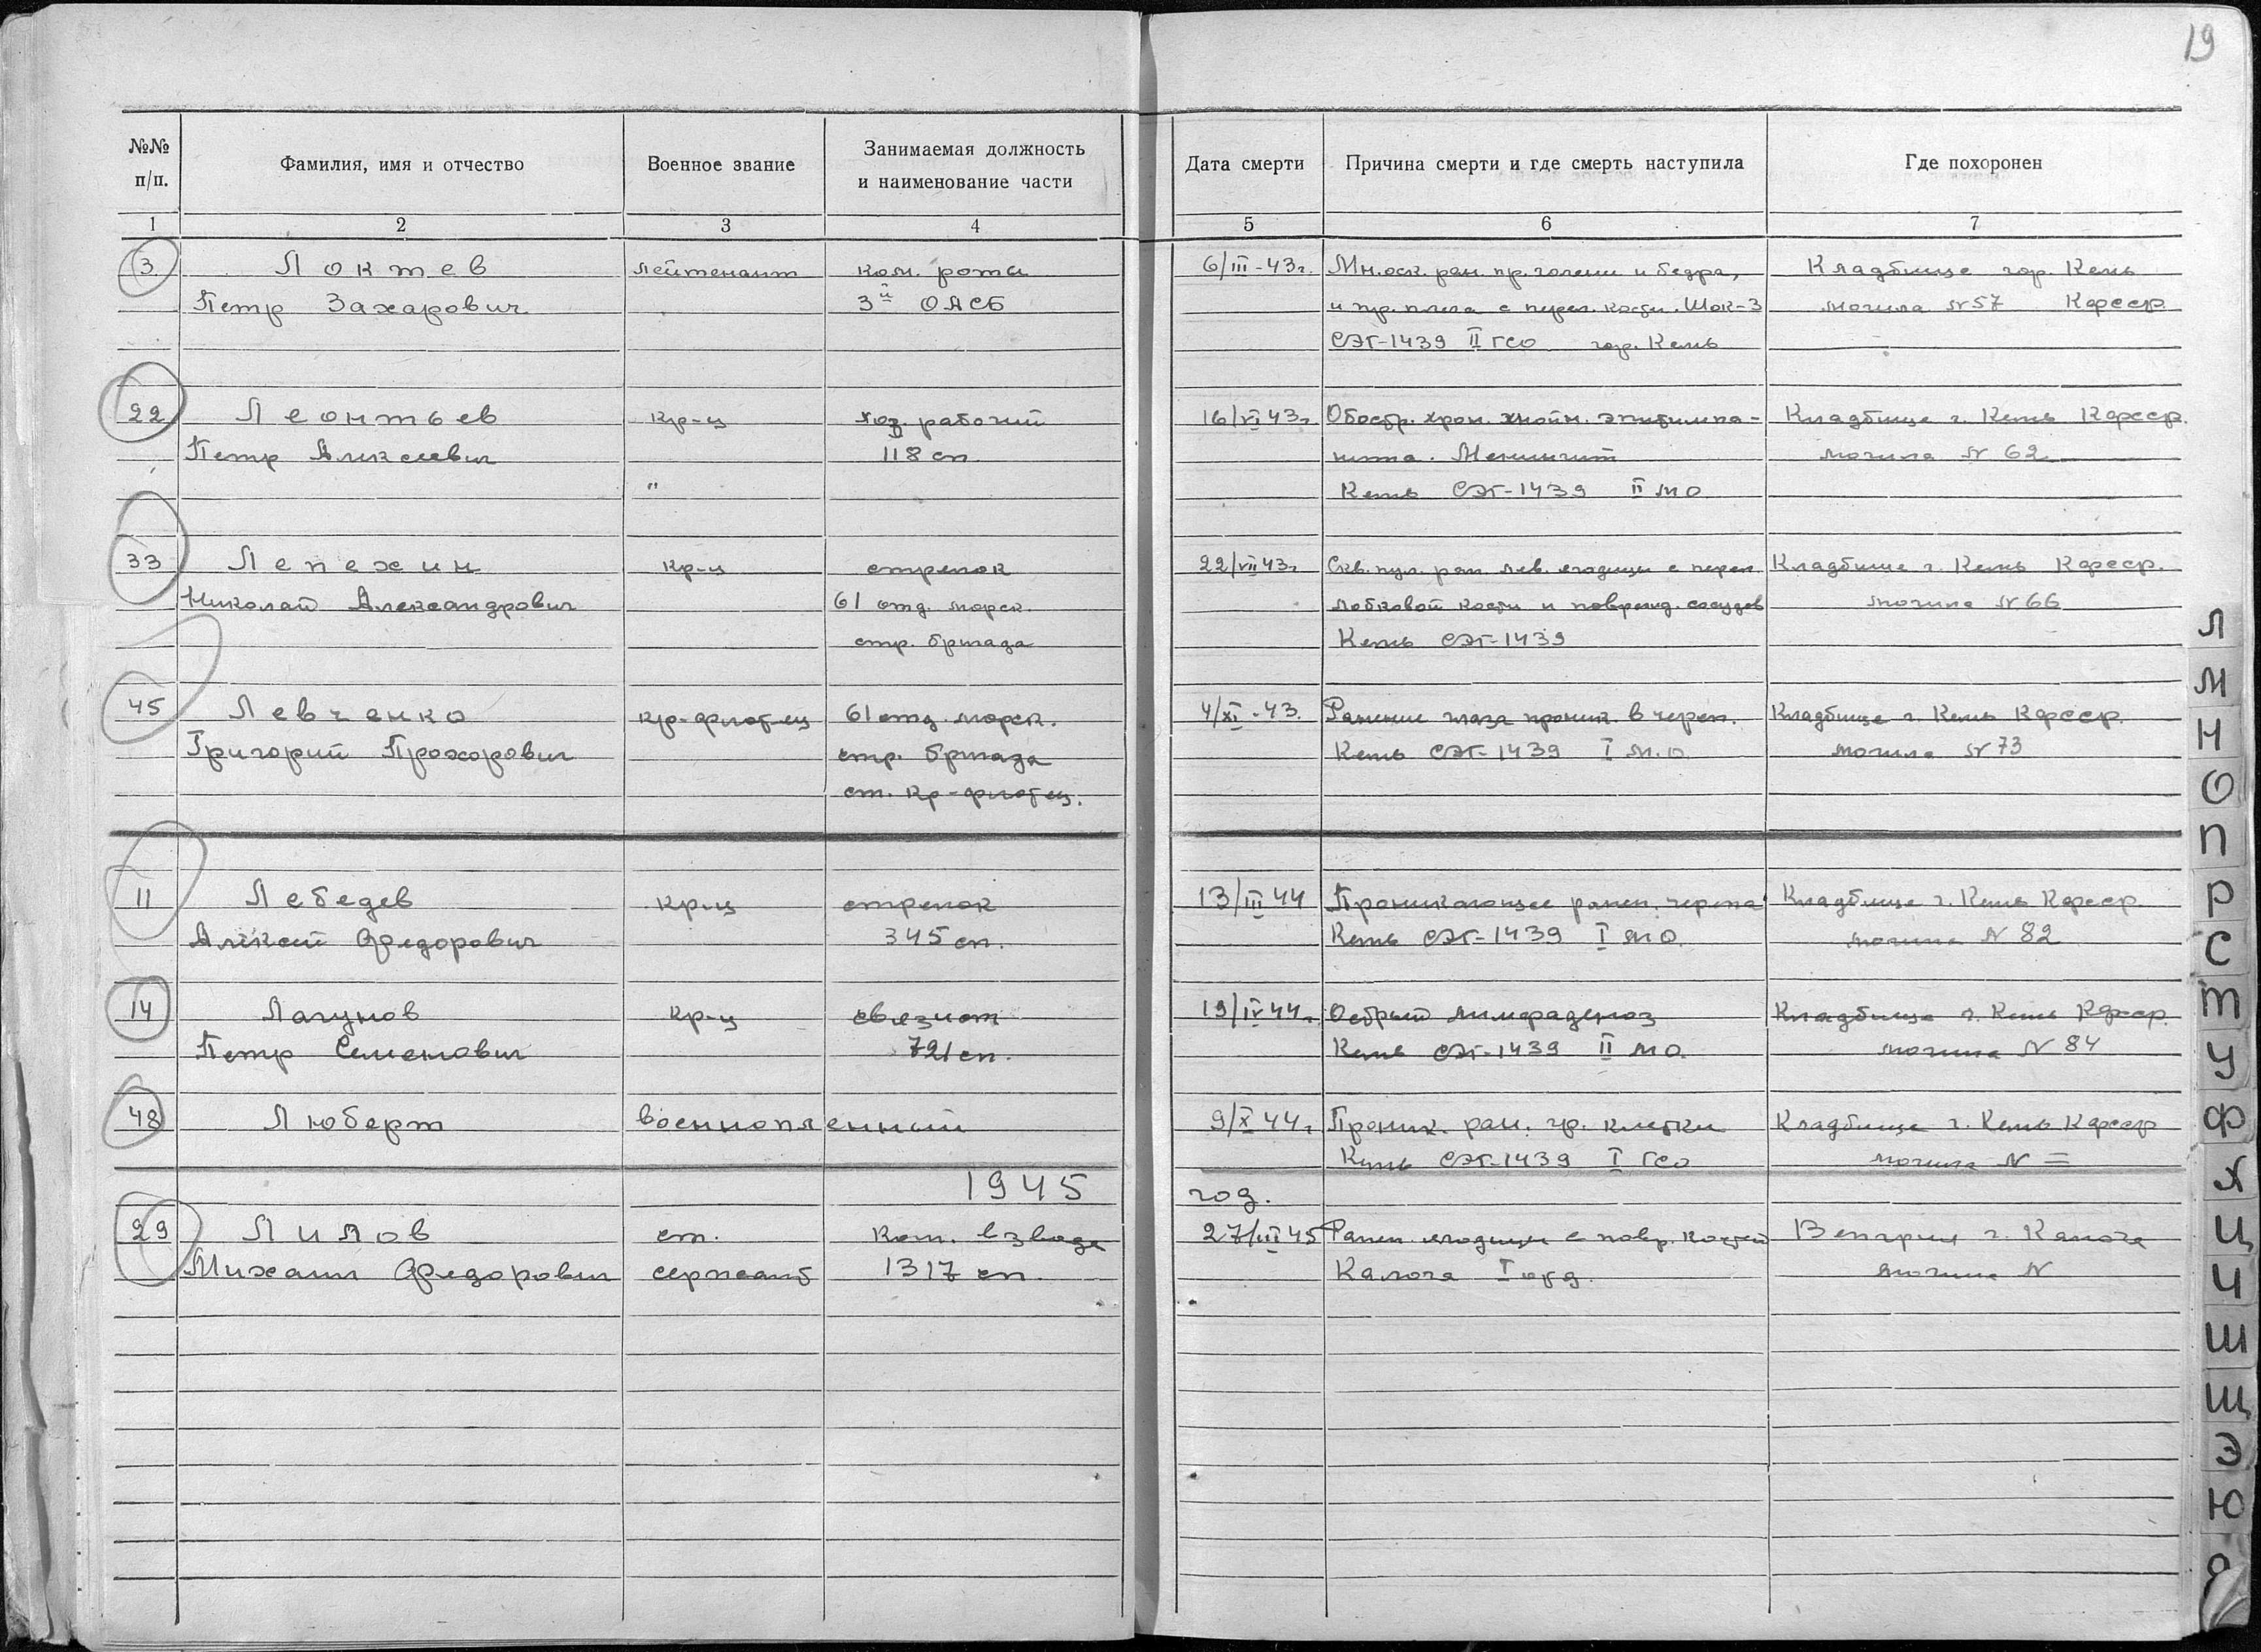 19
№№ п/п.
Фамилия, имя и отчество
Военное звание
Занимаемая должность и наименование части
Дата смерти
Причина смерти и где смерть наступила
Где похоронен
1 2 3 4 5 6 7
3 Локтев лейтенант ком. роты 6/III-43г. Мн. оск. ран. пр. голени и бедра, Кладбище гор. Кемь
Петр Захарович 3й ОАСБ и пр. плеча с перел. кости. Шок-3 могила №57 Кфсср
СЭГ-1439 II ГСО гор. Кемь
22 Леонтьев кр-ц хоз. рабочий 16/VI 43г Обостр. хрон. гнойн. эпитимпа- Кладбище г. Кемь Кфсср.
Петр Алексеевич 118 сп нита. Менингит могила № 62
" Кемь СЭГ-1439 II МО
33 Лепехин кр-ц стрелок 22/VII 43г Скв. пул. ран. лев. ягодицы с перел. Кладбище г. Кемь Кфсср.
Николай Александрович 61 отд. морск. лобковой кости и поврежд. сосудов могила №66
стр. бригада Кемь СЭГ-1439
45 Левченко кр-флотец 61 отд. морск. 4/XI-43. Ранение глаза проник. в череп. Кладбище г. Кемь Кфсср.
Григорий Прохорович стр. бригада Кемь СЭГ-1439 I М.О. могила №73
ст. кр-флотец.
11 Лебедев кр-ц стрелок 13/III 44 Проникающее ранен. черепа Кладбище г. Кемь Кфсср.
Алексей Федорович 345 сп. Кемь СЭГ-1439 I МО. могила № 82
14 Лагунов кр-ц связист 19/IV 44г. Острый лимфаденоз Кладбище г. Кемь Кфсср.
Петр Семенович 721 сп. Кемь СЭГ-1439 II МО. могила № 84
48 Люберт военнопленный 9/X 44г Проник. ран. гр. клетки Кладбище г. Кемь Кфсср
Кемь СЭГ-1439 I ГСО могила № =
1945 год.
29 Лилов ст. ком. взвода 27/III 45 Ранен. ягодицы с повр. костей Венгрия г. Калоча
Михаил Федорович сержант 1317 сп. Калоча I могила №
Л
М
Н
О
П
Р
С
Т
У
Ф
Х
Ц
Ч
Ш
Щ
Э
Ю